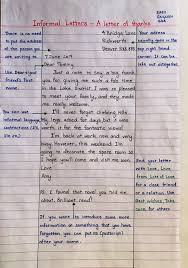 EASY
ENGLISH
Informal Letters - A letter of thanks
There is no need
to put the address
of the person you
are writing to.
4 Bridge Lane
Rickworth
Denver
Your address
usually goes in the
top right hand
corner. It can be
left out altogether.
7 June 2019
Use Dear+your
friend's first
name.
Dear Tommy
Just a note to say a big thank
you for giving me such a fab time
in the Lake District. I was so pleased
to meet your family, and they made
me really welcome.
You can use
informal language
like contractions
I enjoyed the hill walking. My
legs ached for days but it was
worth it for the fantastic views!
I'm back at work now. This weekend I'm
going to decorate the spare room so
I hope you'll come and visit me soon.
Love
Amy
End your letter
with Love, Love
from or Lots of Love
for a close friend
or a relation. Use
Best wishes, Take
care for others.
PS. I found that novel you told me
about. Brilliant read!
If you want to introduce some more
information or something that you have
forgotten you can put PS (postscript)
after your name.